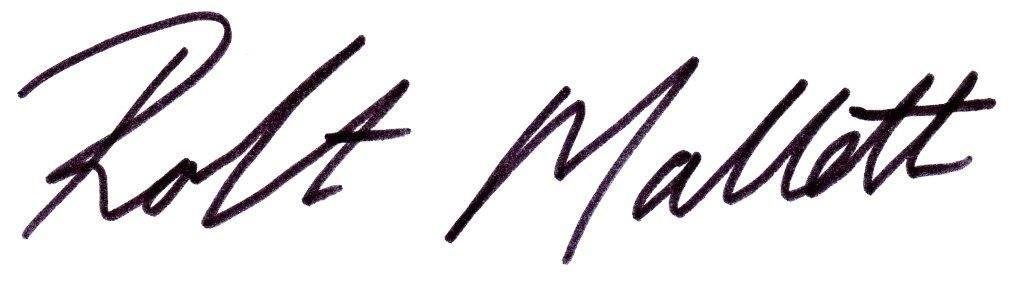 Robt Mallett